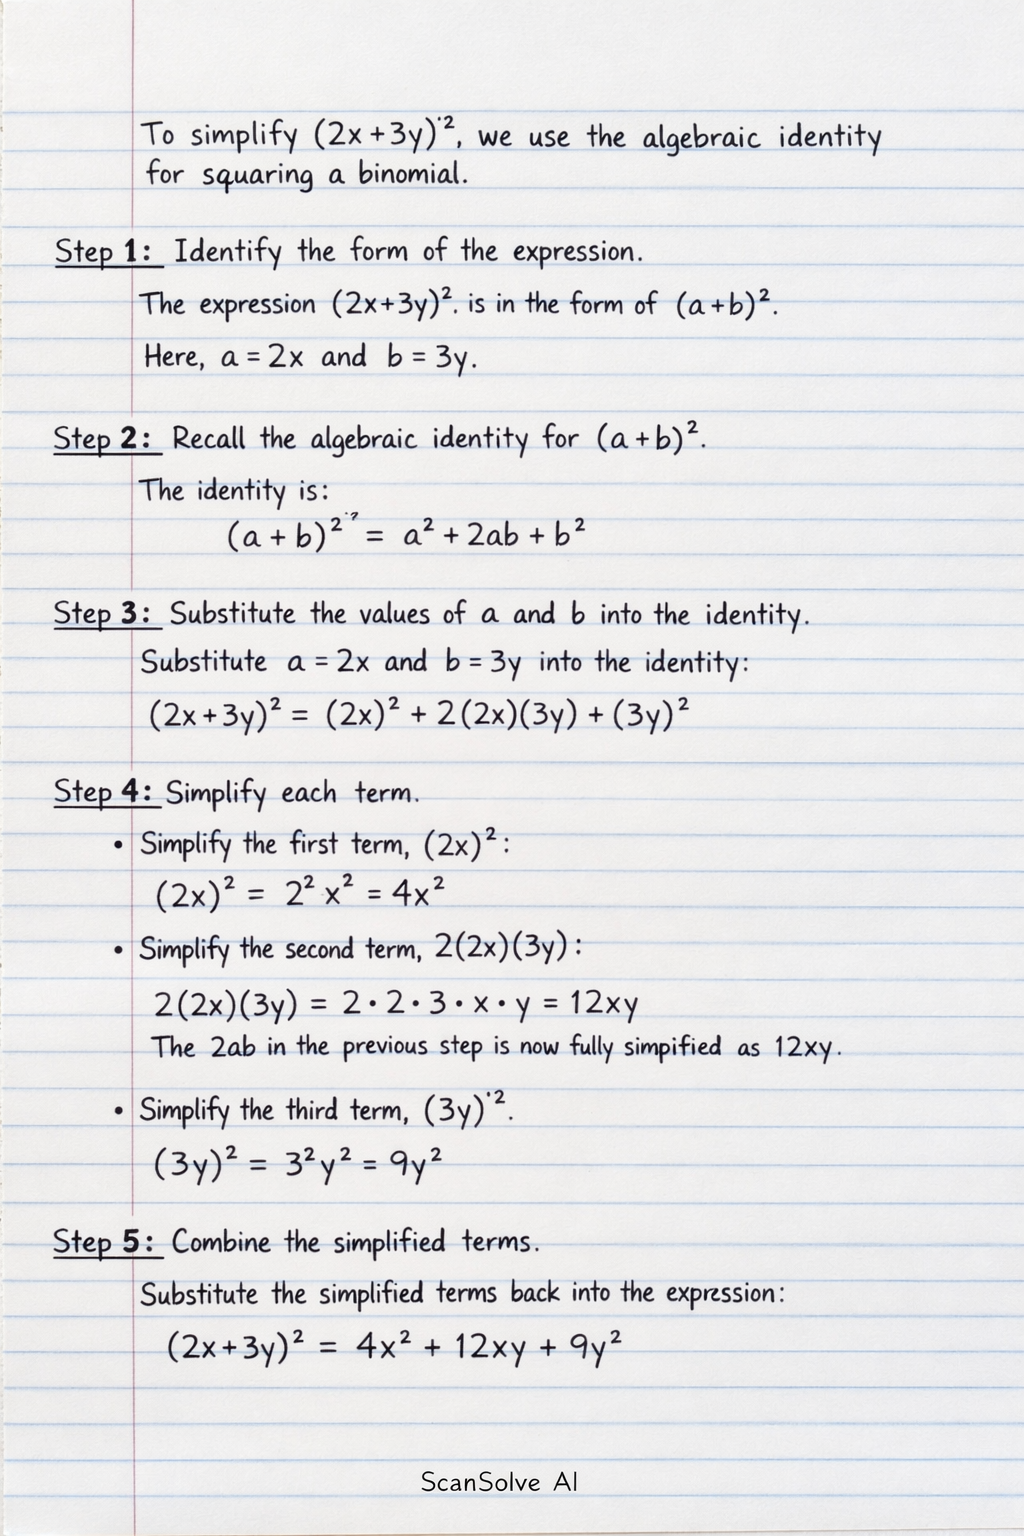 To simplify (2x+3y)˙², we use the algebraic identity
for squaring a binomial.
Step 1: Identify the form of the expression.
The expression (2x+3y)². is in the form of (a+b)².
Here, a = 2x and b = 3y.
Step 2: Recall the algebraic identity for (a+b)².
The identity is:
(a + b)² = a² + 2ab + b²
Step 3: Substitute the values of a and b into the identity.
Substitute a = 2x and b = 3y into the identity:
(2x+3y)² = (2x)² + 2(2x)(3y) + (3y)²
Step 4: Simplify each term.
• Simplify the first term, (2x)²:
(2x)² = 2² x² = 4x²
• Simplify the second term, 2(2x)(3y):
2(2x)(3y) = 2 • 2 • 3 • x • y = 12xy
The 2ab in the previous step is now fully simpified as 12xy.
• Simplify the third term, (3y)˙².
(3y)² = 3²y² = 9y²
Step 5: Combine the simplified terms.
Substitute the simplified terms back into the expression:
(2x+3y)² = 4x² + 12xy + 9y²
ScanSolve AI